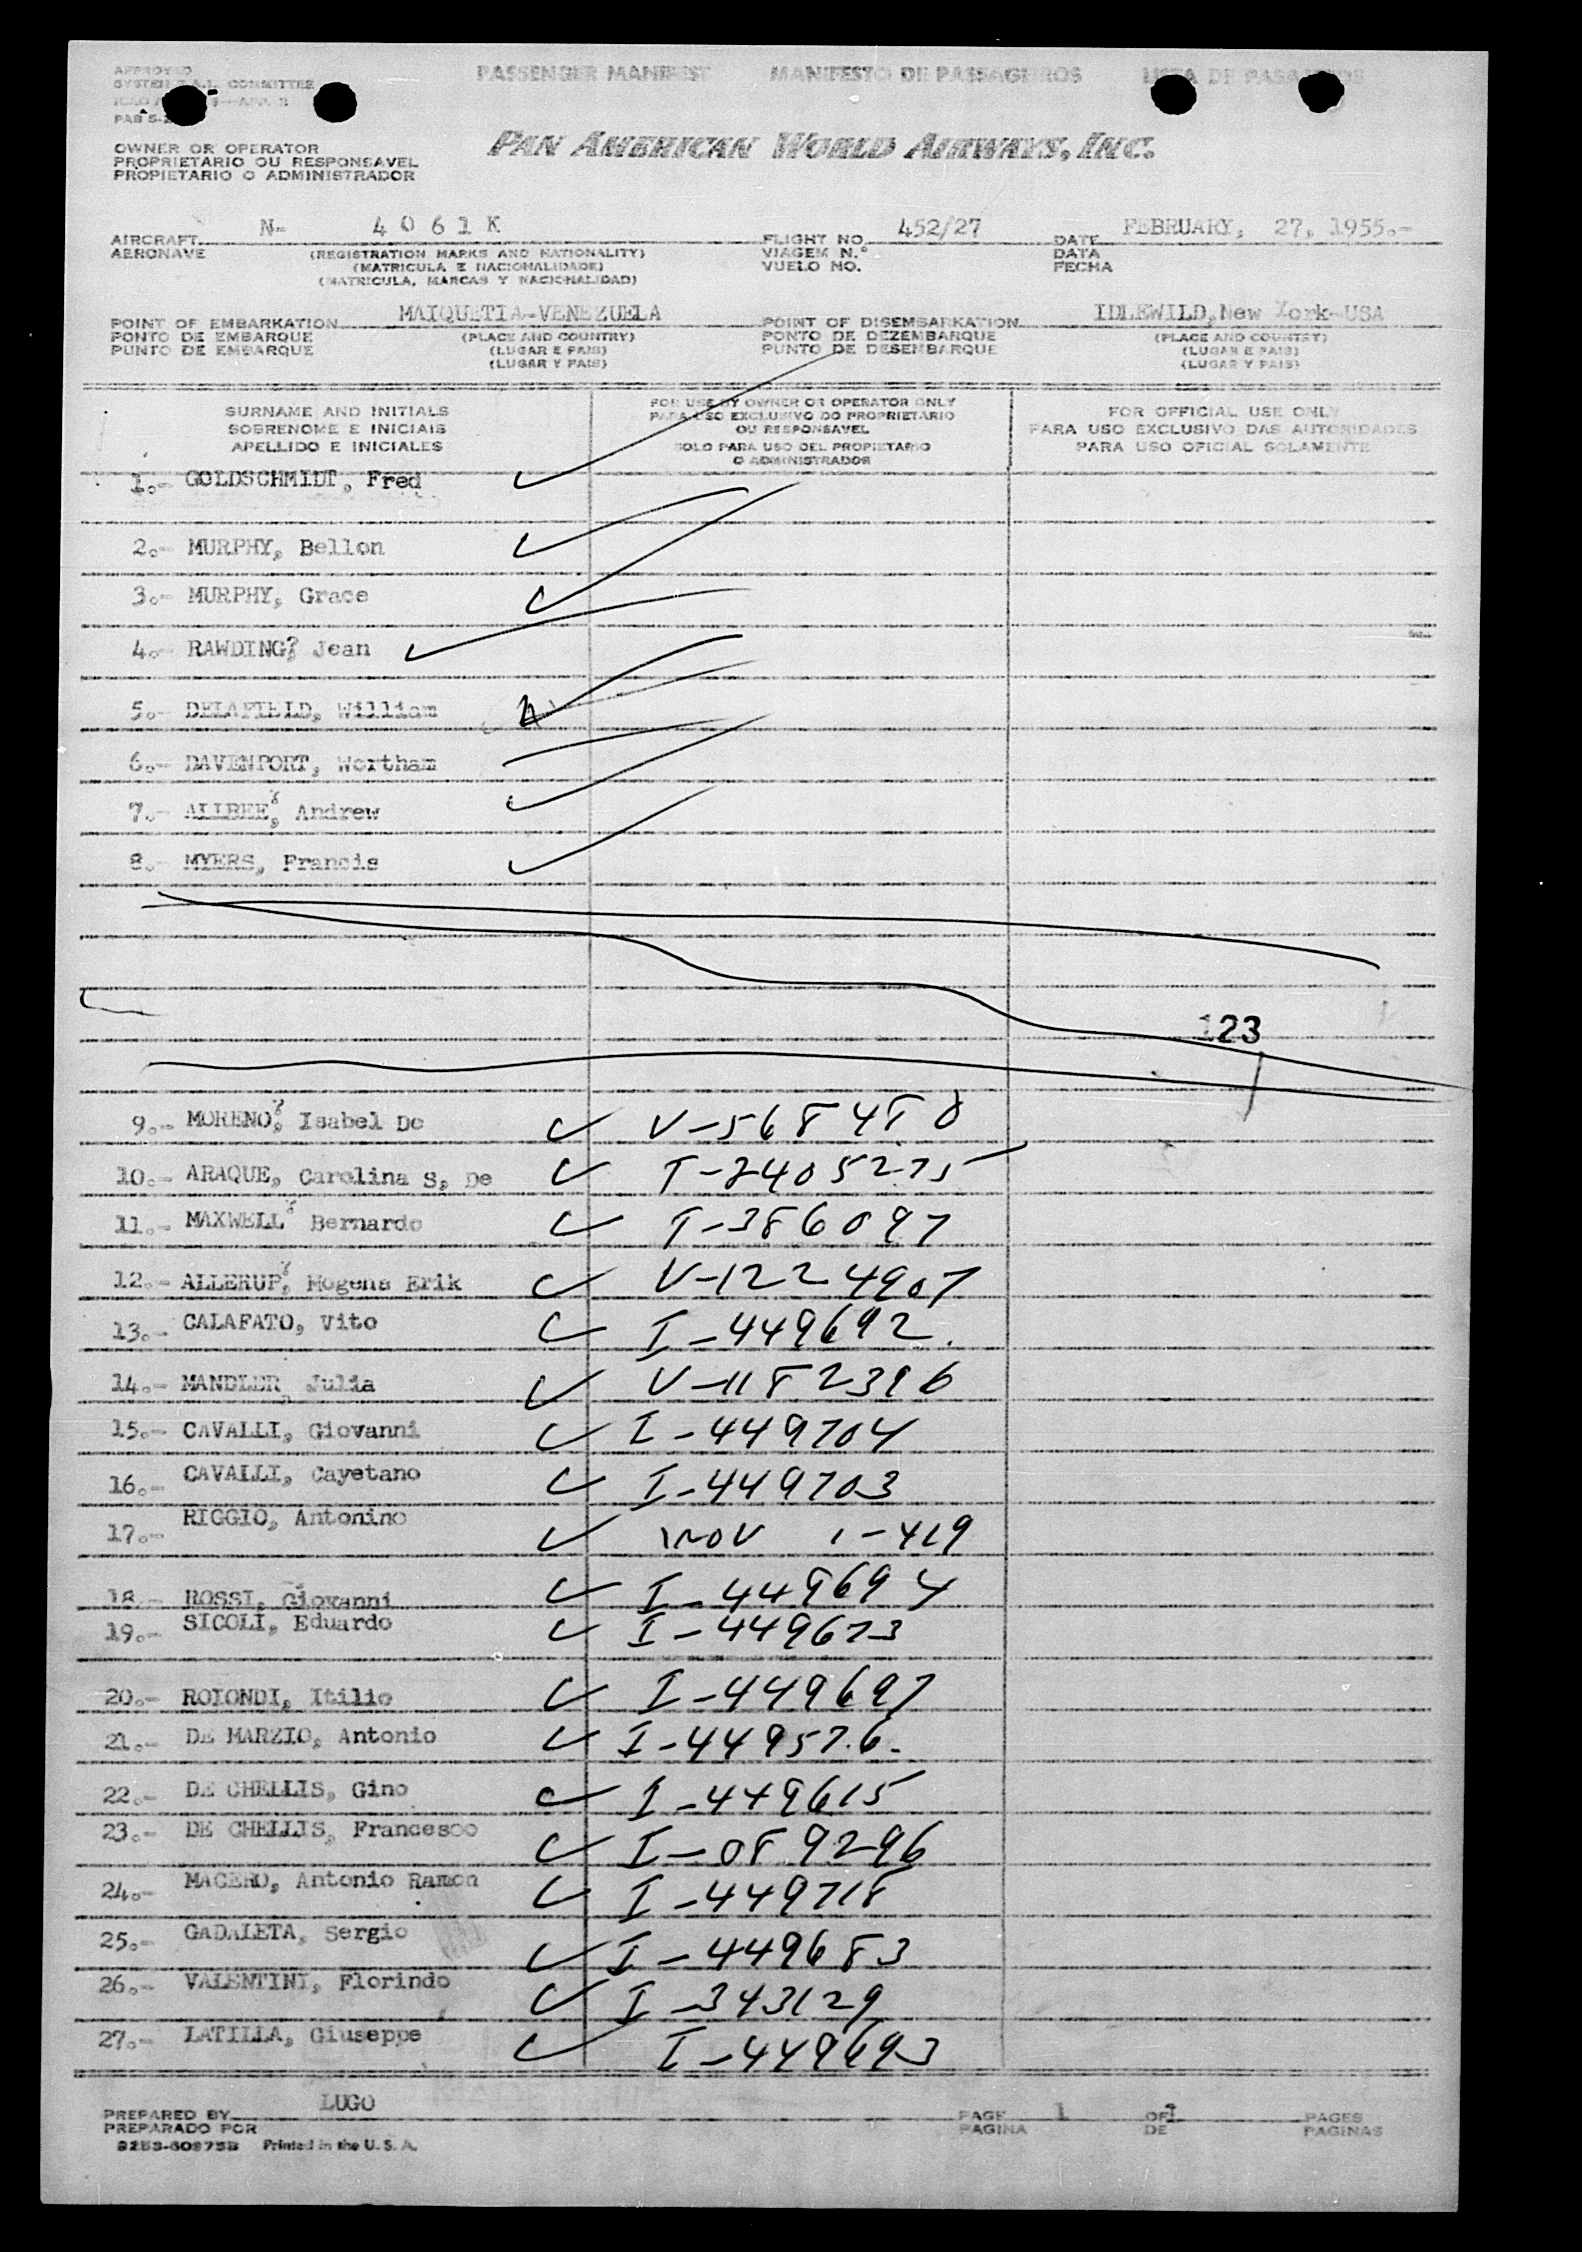 APPROVED
SYSTEM F.A.L. COMMITTEE
PASSENGER MANIFEST MANIFESTO DE PASSAGEIROS LISTA DE PASAJEROS
PAN AMERICAN WORLD AIRWAYS, INC.
OWNER OR OPERATOR
PROPRIETARIO OU RESPONSAVEL
PROPIETARIO O ADMINISTRADOR
AIRCRAFT N- 4 0 6 1 K FLIGHT NO. 452/27 DATE FEBRUARY, 27, 1955.-
AERONAVE (REGISTRATION MARKS AND NATIONALITY) VIAGEM N.° DATA
(MATRICULA E NACIONALIDADE) VUELO NO. FECHA
(MATRICULA, MARCAS Y NACIONALIDAD)
POINT OF EMBARKATION MAIQUETIA-VENEZUELA POINT OF DISEMBARKATION IDLEWILD, New York-USA
PONTO DE EMBARQUE (PLACE AND COUNTRY) PONTO DE DEZEMBARQUE (PLACE AND COUNTRY)
PUNTO DE EMBARQUE (LUGAR E PAIS) PUNTO DE DESEMBARQUE (LUGAR E PAIS)
(LUGAR Y PAIS) (LUGAR Y PAIS)
SURNAME AND INITIALS
SOBRENOME E INICIAIS
APELLIDO E INICIALES
FOR USE BY OWNER OR OPERATOR ONLY
PARA USO EXCLUSIVO DO PROPRIETARIO
OU RESPONSAVEL
SOLO PARA USO DEL PROPIETARIO
O ADMINISTRADOR
FOR OFFICIAL USE ONLY
PARA USO EXCLUSIVO DAS AUTORIDADES
PARA USO OFICIAL SOLAMENTE
1.- GOLDSCHMIDT, Fred
2.- MURPHY, Bellon
3.- MURPHY, Grace
4.- RAWDING, Jean
5.- DELAFIELD, William
6.- DAVENPORT, Wortham
7.- ALLBEE, Andrew
8.- MYERS, Francis
123
9.- MORENO, Isabel De V-568480
10.- ARAQUE, Carolina S, De T-2405275
11.- MAXWELL Bernardo T-386097
12.- ALLERUP, Mogens Erik V-1224907
13.- CALAFATO, Vito I-449692.
14.- MANDLER, Julia V-1182396
15.- CAVALLI, Giovanni I-449704
16.- CAVALLI, Cayetano I-449703
17.- RIGGIO, Antonino 1-419
18.- ROSSI, Giovanni I-449694
19.- SICOLI, Eduardo I-449673
20.- ROIONDI, Itilio I-449697
21.- DE MARZIO, Antonio I-449576.
22.- DE CHELLIS, Gino I-449615
23.- DE CHELLIS, Francesco I-089296
24.- MACERO, Antonio Ramon I-449718
25.- GADALETA, Sergio I-449683
26.- VALENTINI, Florindo I-343129
27.- LATILLA, Giuseppe I-449693
PREPARED BY LUGO PAGE 1 OF 1 PAGES
PREPARADO POR PAGINA DE PAGINAS
Printed in the U. S. A.